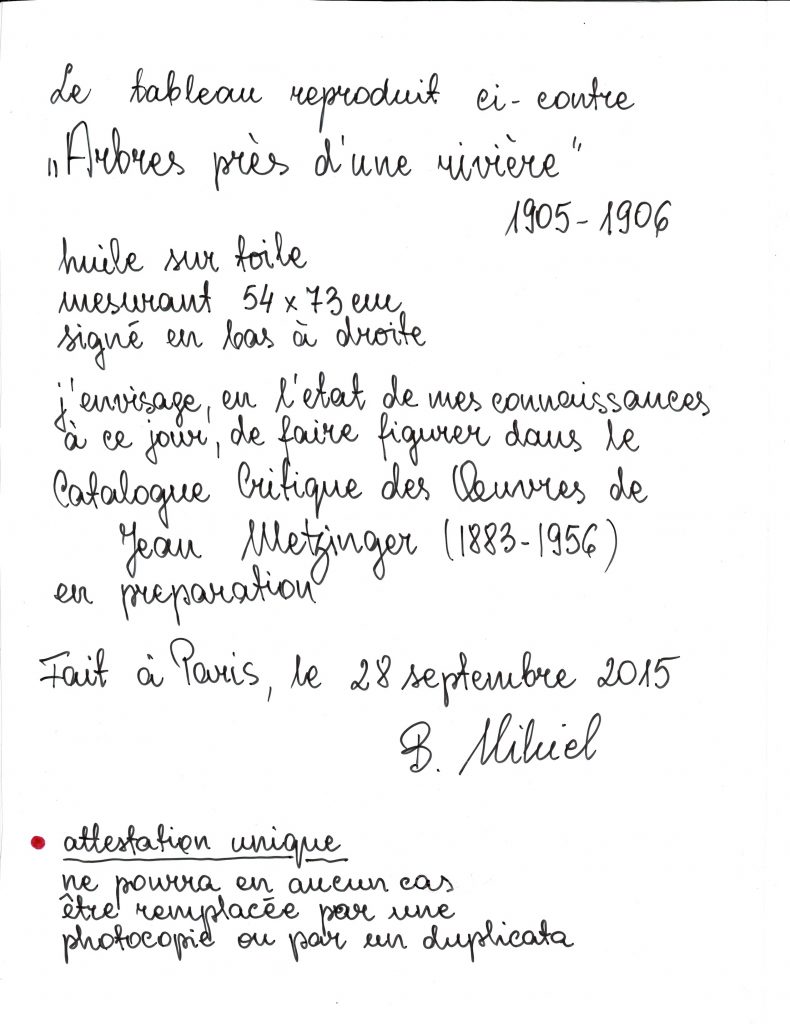 Le tableau reproduit ci-contre
„Arbres près d'une rivière"
1905-1906
huile sur toile
mesurant 54 x 73 cm
signé en bas à droite
j'envisage, en l'état de mes connaissances
à ce jour, de faire figurer dans le
Catalogue Critique des Œuvres de
Jean Metzinger (1883-1956)
en preparation
Fait à Paris, le 28 septembre 2015
B.
• attestation unique
ne pourra en aucun cas
être remplacée par une
photocopie ou par un duplicata